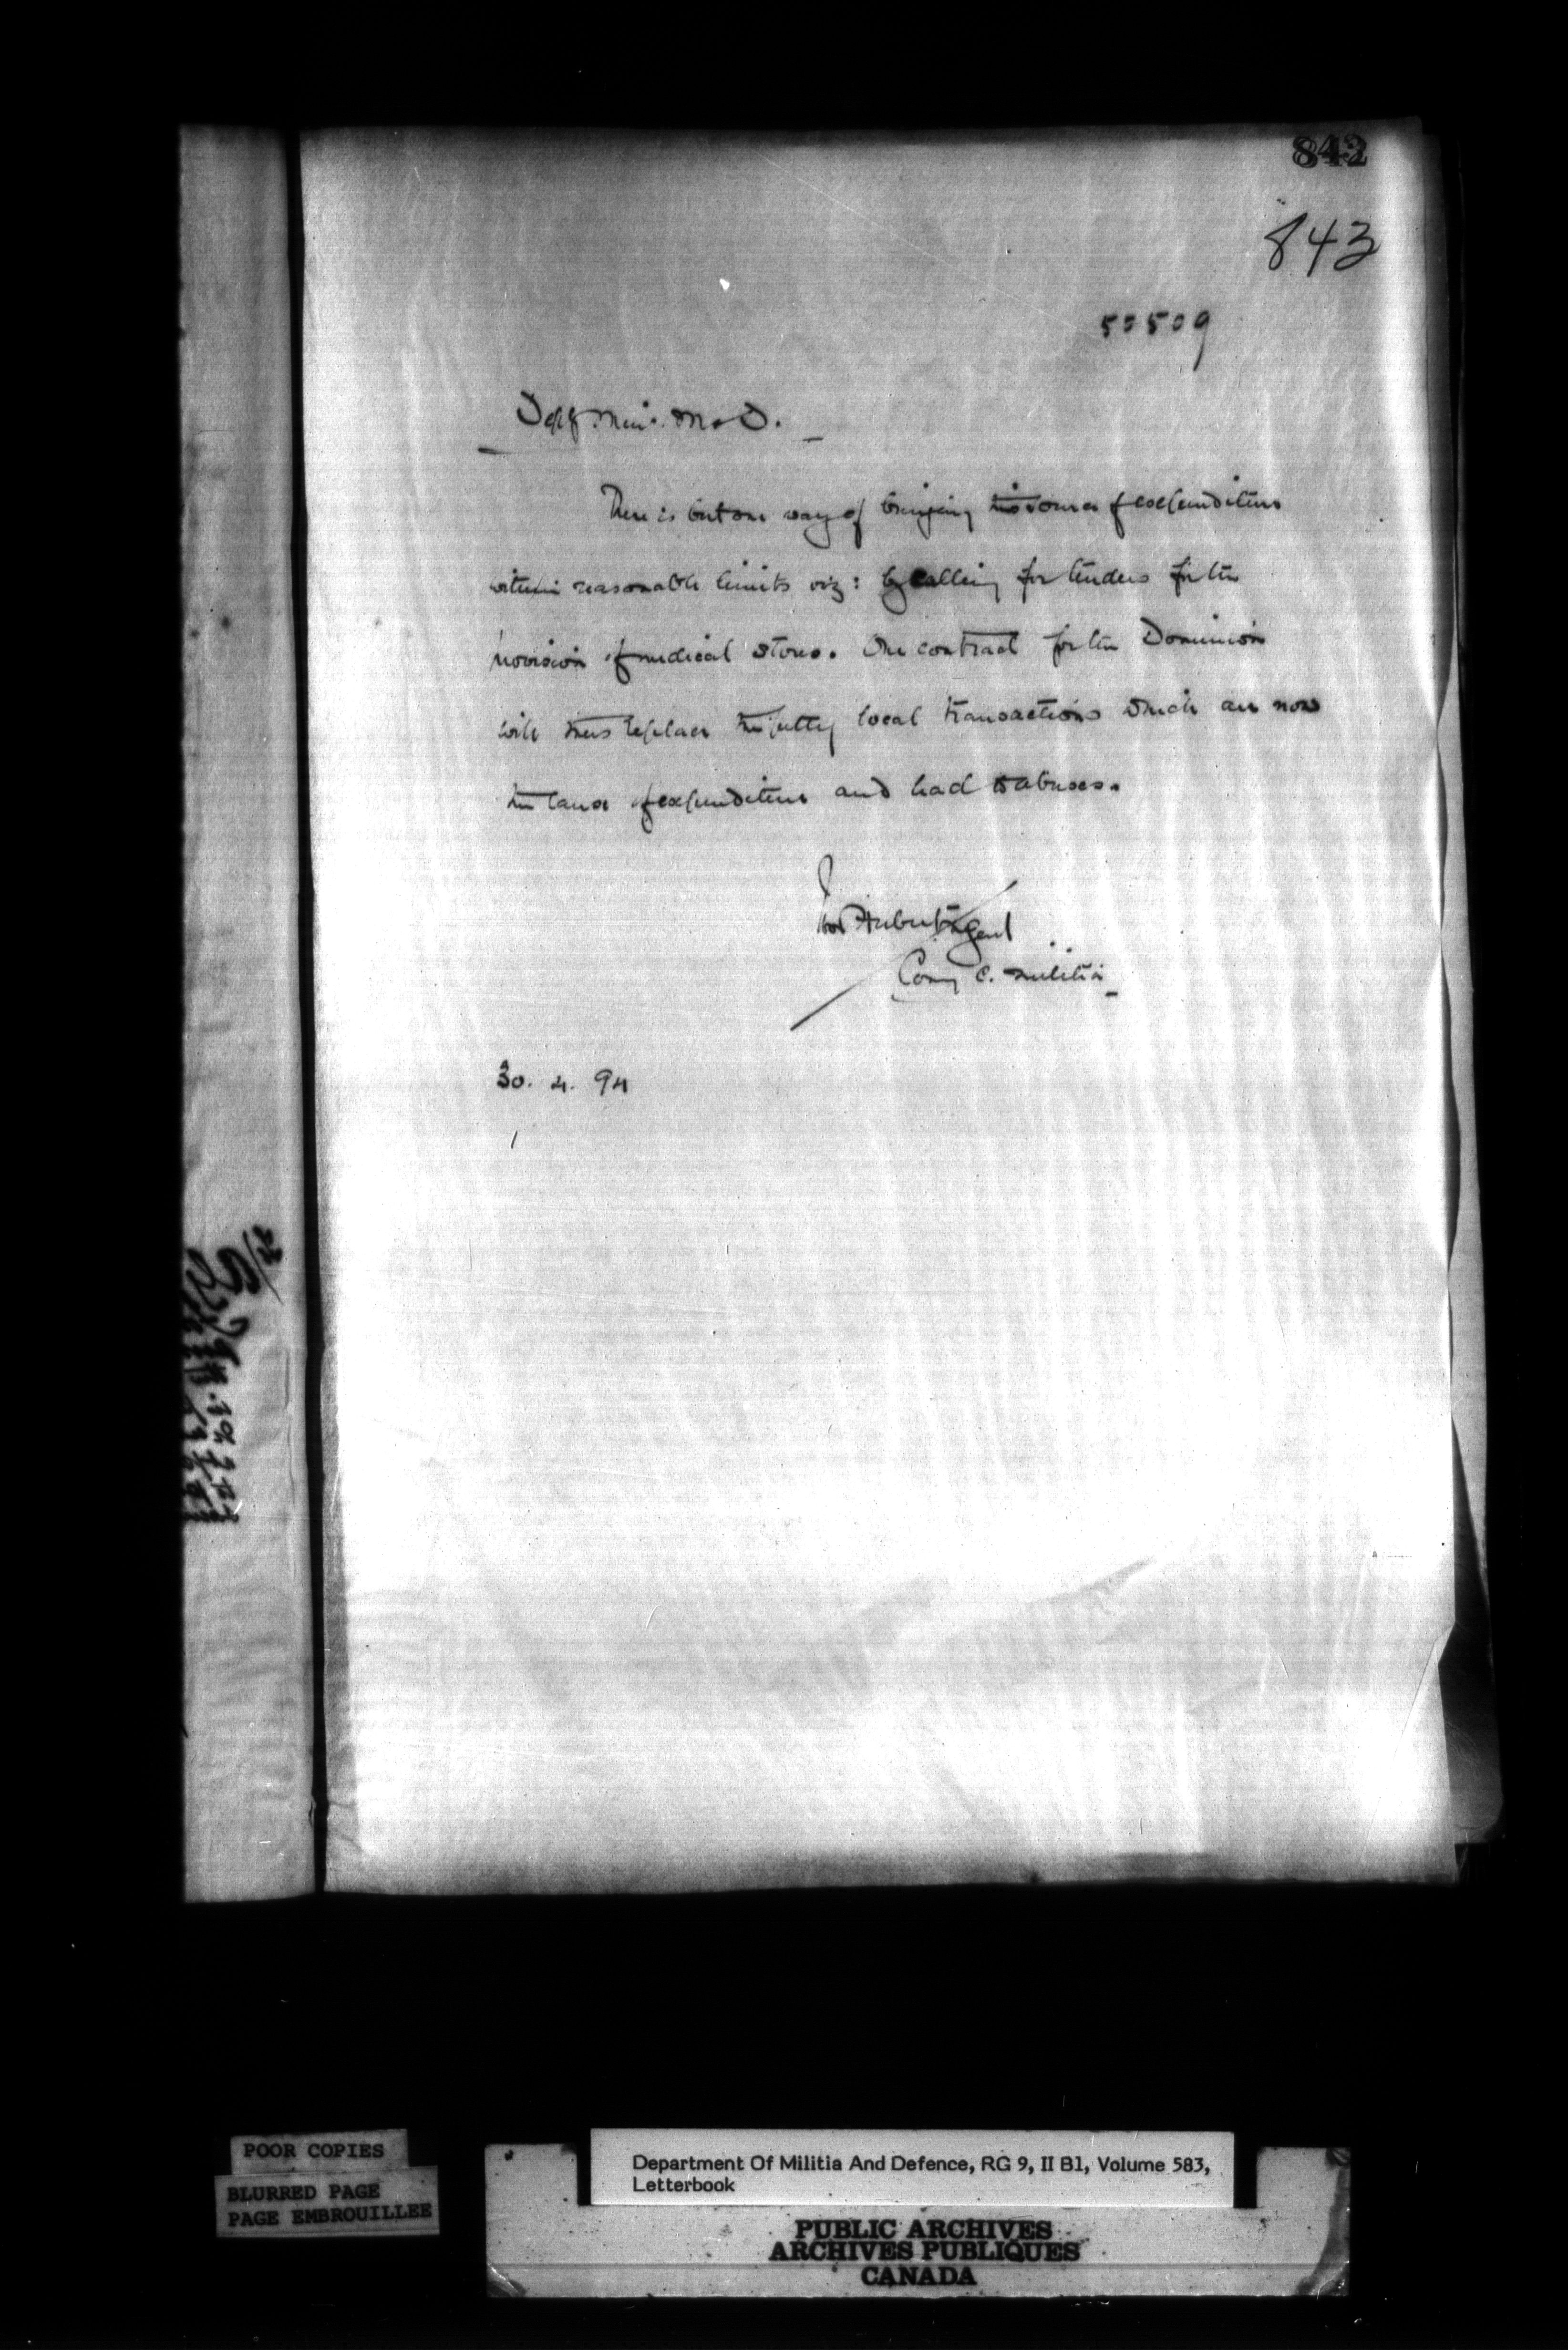 842
843
50509
Dept Min. M & D.
There is but one way of bringing this source of expenditure
within reasonable limits viz: by calling for tenders for the
provision of medical stores. One contract for the Dominion
will thus replace the petty local transactions which are now
the cause of expenditure and lead to abuses.
Ivor Herbert M Genl
Comg C. Militia
30. 4. 94
POOR COPIES
BLURRED PAGE
PAGE EMBROUILLEE
Department Of Militia And Defence, RG 9, II B1, Volume 583,
Letterbook
PUBLIC ARCHIVES
ARCHIVES PUBLIQUES
CANADA